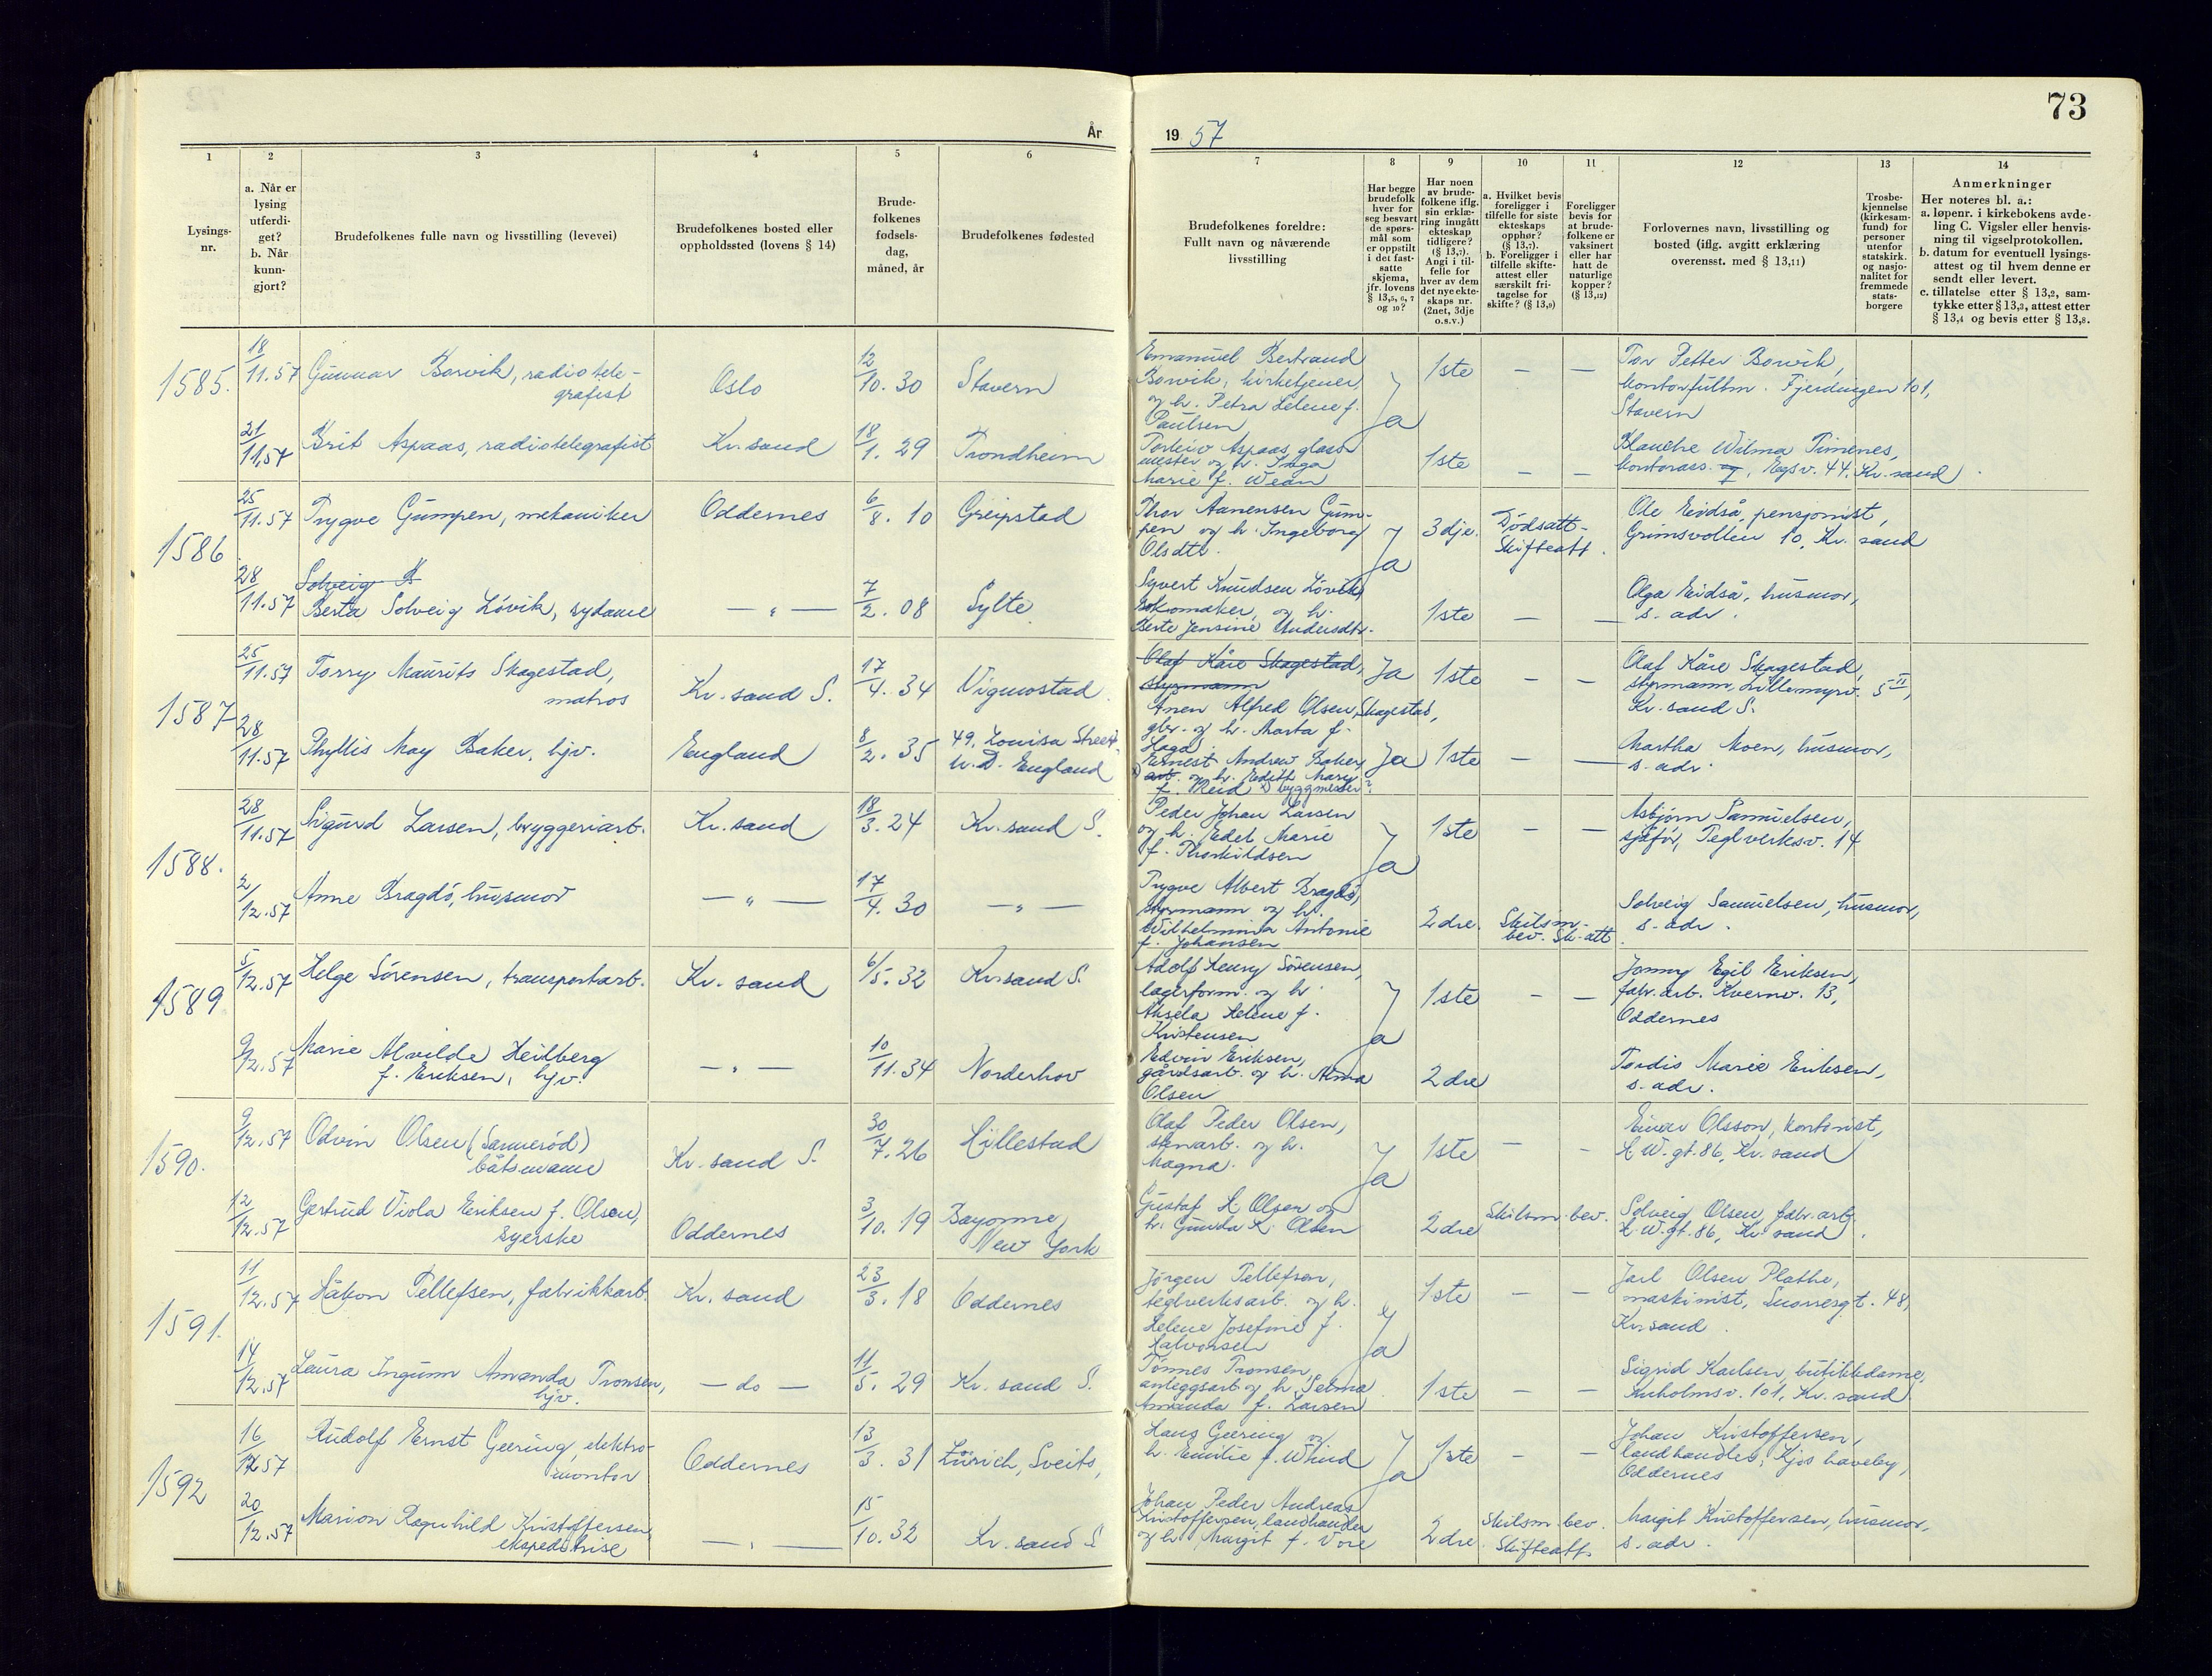 73
År 19 57
1
2
3
4
5
6
7
8
9
10
11
12
13
14
Lysings-
nr.
a. Når er
lysing
utferdi-
get?
b. Når
kunn-
gjort?
Brudefolkenes fulle navn og livsstilling (levevei)
Brudefolkenes bosted eller
oppholdssted (lovens § 14)
Brude-
folkenes
fødsels-
dag,
måned, år
Brudefolkenes fødested
Brudefolkenes foreldre:
Fullt navn og nåværende
livsstilling
Har begge
brudefolk
hver for
seg besvart
de spørs-
mål som
er oppstilt
i det fast-
satte
skjema,
jfr. lovens
§ 13,5, 6, 7
og 10?
Har noen
av brude-
folkene iflg.
sin erklæ-
ring inngått
ekteskap
tidligere?
(§ 13,7).
Angi i til-
felle for
hver av dem
det nye ekte-
skaps nr.
(2net, 3dje
o.s.v.)
a. Hvilket bevis
foreligger i
tilfelle for siste
ekteskaps
opphør?
(§ 13,7).
b. Foreligger i
tilfelle skifte-
attest eller
særskilt fri-
tagelse for
skifte? (§ 13,9)
Foreligger
bevis for
at brude-
folkene er
vaksinert
eller har
hatt de
naturlige
kopper?
(§ 13,12)
Forlovernes navn, livsstilling og
bosted (iflg. avgitt erklæring
overensst. med § 13,11)
Trosbe-
kjennelse
(kirkesam-
fund) for
personer
utenfor
statskirk.
og nasjo-
nalitet for
fremmede
stats-
borgere
Anmerkninger
Her noteres bl. a.:
a. løpenr. i kirkebokens avde-
ling C. Vigsler eller henvis-
ning til vigselprotokollen.
b. datum for eventuell lysings-
attest og til hvem denne er
sendt eller levert.
c. tillatelse etter § 13,2, sam-
tykke etter § 13,3, attest etter
§ 13,4 og bevis etter § 13,8.
1585.
18/11.57 Gunnar Borvik, radiotele-
grafist
Oslo
12/10. 30
Stavern
Emanuel Bertrand
Borvik, kirketjener,
og h. Petra Helene f.
Paulsen
Ja
1ste
—
—
Tor Petter Borvik,
kontorfullm. Fjerdingen 101,
Stavern
21/11.57 Brit Aspaas, radiotelegrafist
Kr.sand
18/1. 29
Trondheim
Torleiv Aspaas, glass-
mester og h. Inga
Marie f. Wean
1ste
—
—
Blanche Wilma Timenes,
kontorass. Egsv. 44, Kr.sand
1586
25/11.57 Trygve Gumpen, mekaniker
Oddernes
6/8. 10
Greipstad
Thor Aanensen Gum-
pen og h. Ingeborg
Olsdtr.
Ja
3dje.
Dødsatt-
Skifteatt.
Ole Eidså, pensjonist,
Grimsvollen 10, Kr. sand
Solveig B
28/11.57 Berta Solveig Lövik, sydame
— " —
7/2. 08
Sylte
Syvert Knudsen Lövik,
skomaker, og h.
Berte Jensine
1ste
—
—
Olga Eidså, husmor,
s. adr.
1587
25/11.57 Torry Maurits Skagestad,
matros
Kr. sand S.
17/4. 34
Vigmostad
Olaf Kåre Skagestad,
styrmann
Anen Alfred Olsen Skagestad,
gbr. og h. Marta f.
Haga
Ja
1ste
—
—
Olaf Kåre Skagestad,
styrmann, Lillemyrv. 5 II,
Kr. sand S.
28/11.57 Phyllis May Baker, hjv.
England
8/2. 35
49, Louisa Street
England
Ernest Andrew Baker,
arb. og h. Edith Mary
f. Reid byggmester
Ja
1ste
—
—
Martha Moen, husmor,
s. adr.
1588.
28/11.57 Sigurd Larsen, bryggeriarb.
Kr. sand
18/3. 24
Kr. sand S.
Peder Johan Larsen
og h. Edel Marie
f. Thorkildsen
Ja
1ste
—
—
Asbjørn Samuelsen,
sjåför, Teglverksv. 14
2/12.57 Anne Bragdö, husmor
— " —
17/4. 30
— " —
Trygve Albert Bragdö,
styrmann og h.
Wilhelmina Antonie
f. Johansen
2dre.
Skilsm.-
bev. Sk-att.
Solveig Samuelsen, husmor,
s. adr.
1589
5/12.57 Helge Sörensen, transportarb.
Kr. sand
6/5. 32
Kr.sand S.
Adolf Henry Sörensen,
lagerform. og h.
Aksela Helene f.
Kristensen
Ja
1ste
—
—
Jonny Egil Eriksen,
fabr.arb. Kvernv. 13,
Oddernes
9/12.57 Marie Alvilde Heilberg
f. Eriksen, hjv.
— " —
10/11.34
Norderhov
Edvin Eriksen,
gårdsarb. og h. Alma
Olsen
2dre
Tordis Marie Eriksen,
s. adr.
1590.
9/12.57 Odvin Olsen (Sannerød)
båtsmann
Kr. sand S.
30/7.26
Hillestad
Olaf Peder Olsen,
stenarb. og h.
Magna.
Ja
1ste
—
-
Einar Olsson, kontorist,
H.W.gt. 86, Kr. sand
12/12.57 Gertrud Viola Eriksen f. Olsen,
syerske
Oddernes
3/10. 19
Bayonne,
New York
Gustaf H. Olsen og
h. Gunda K. Olsen
2dre
Skilsm. bev.
Solveig Olsen, fabr.arb.
H.W.gt. 86, Kr. sand.
1591.
11/12.57 Håkon Tellefsen, fabrikkarb.
Kr. sand
23/3. 18
Oddernes
Jörgen Tellefsen,
teglverksarb. og h.
Helene Josefine f.
Halvorsen
Ja
1ste
—
—
Jarl Olsen Plathe,
maskinist, Snorresgt. 48,
Kr.sand.
14/12.57 Laura Ingunn Amanda Tronsen,
hjv.
— do —
11/5. 29
Kr. sand S.
Tönnes Tronsen,
anleggsarb. og h. Selma
Amanda f. Larsen
1ste
—
—
Sigrid Karlsen, butikkdame,
101, Kr. sand
1592
16/12.57 Rudolf Ernst Geering, elektro-
montör
Oddernes
13/3. 31
Zürich, Sveits,
Hans Geering og
h. Emilie f.
Ja
1ste
-
-
Johan Kristoffersen,
landhandler, Kjos haveby,
Oddernes
20/12.57 Marion Ragnhild Kristoffersen
ekspeditrise
— " —
15/10. 32
Kr. sand S.
Johan Peder Andreas
Kristoffersen, landhandler
og h. Margit f. Vore
2dre.
Skilsm. bev.
Skifteatt.
Margit Kristoffersen, husmor,
s. adr.